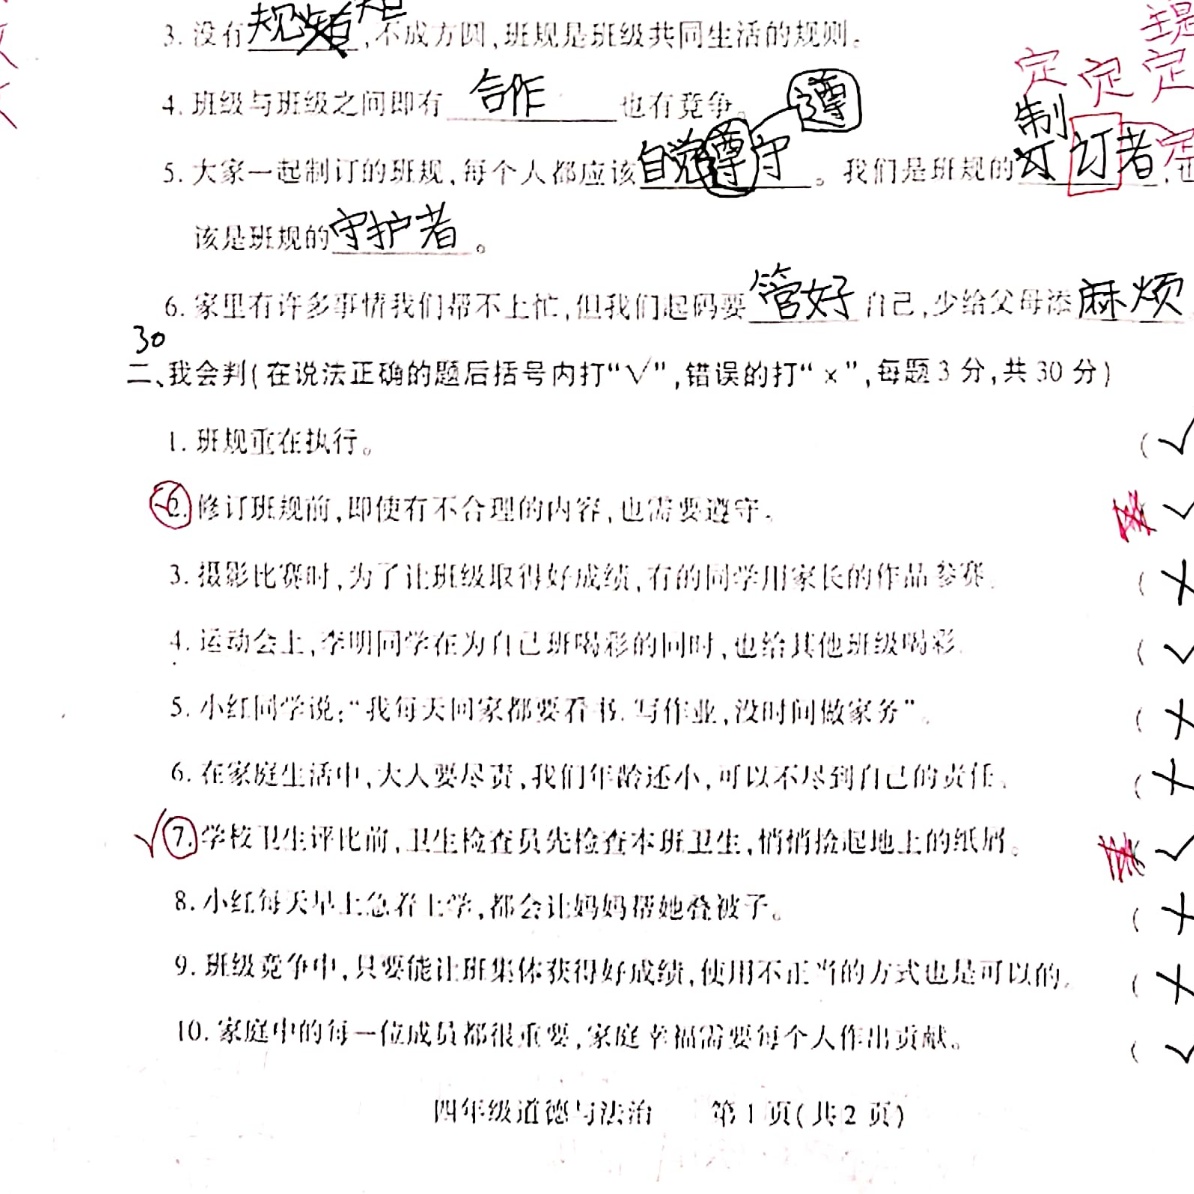 3. 没有规矩,不成方圆,班规是班级共同生活的规则。
定 定 定
4. 班级与班级之间即有 合作 也有竞争。 遵
制
5. 大家一起制订的班规,每个人都应该自觉遵守。我们是班规的订者,也
该是班规的守护者。
6. 家里有许多事情我们帮不上忙,但我们起码要管好自己,少给父母添麻烦
30
二、我会判(在说法正确的题后括号内打“√”,错误的打“×”,每题3分,共30分)
1. 班规重在执行。 (√
2. 修订班规前,即使有不合理的内容,也需要遵守。 √
3. 摄影比赛时,为了让班级取得好成绩,有的同学用家长的作品参赛。 (×
4. 运动会上,李明同学在为自己班喝彩的同时,也给其他班级喝彩。 (√
5. 小红同学说:“我每天回家都要看书、写作业,没时间做家务”。 (×
6. 在家庭生活中,大人要尽责,我们年龄还小,可以不尽到自己的责任。 (×
√7. 学校卫生评比前,卫生检查员先检查本班卫生,悄悄捡起地上的纸屑。 √
8. 小红每天早上急着上学,都会让妈妈帮她叠被子。 (×
9. 班级竞争中,只要能让班集体获得好成绩,使用不正当的方式也是可以的。 (×
10. 家庭中的每一位成员都很重要,家庭幸福需要每个人作出贡献。 (√
四年级道德与法治 第1页(共2页)